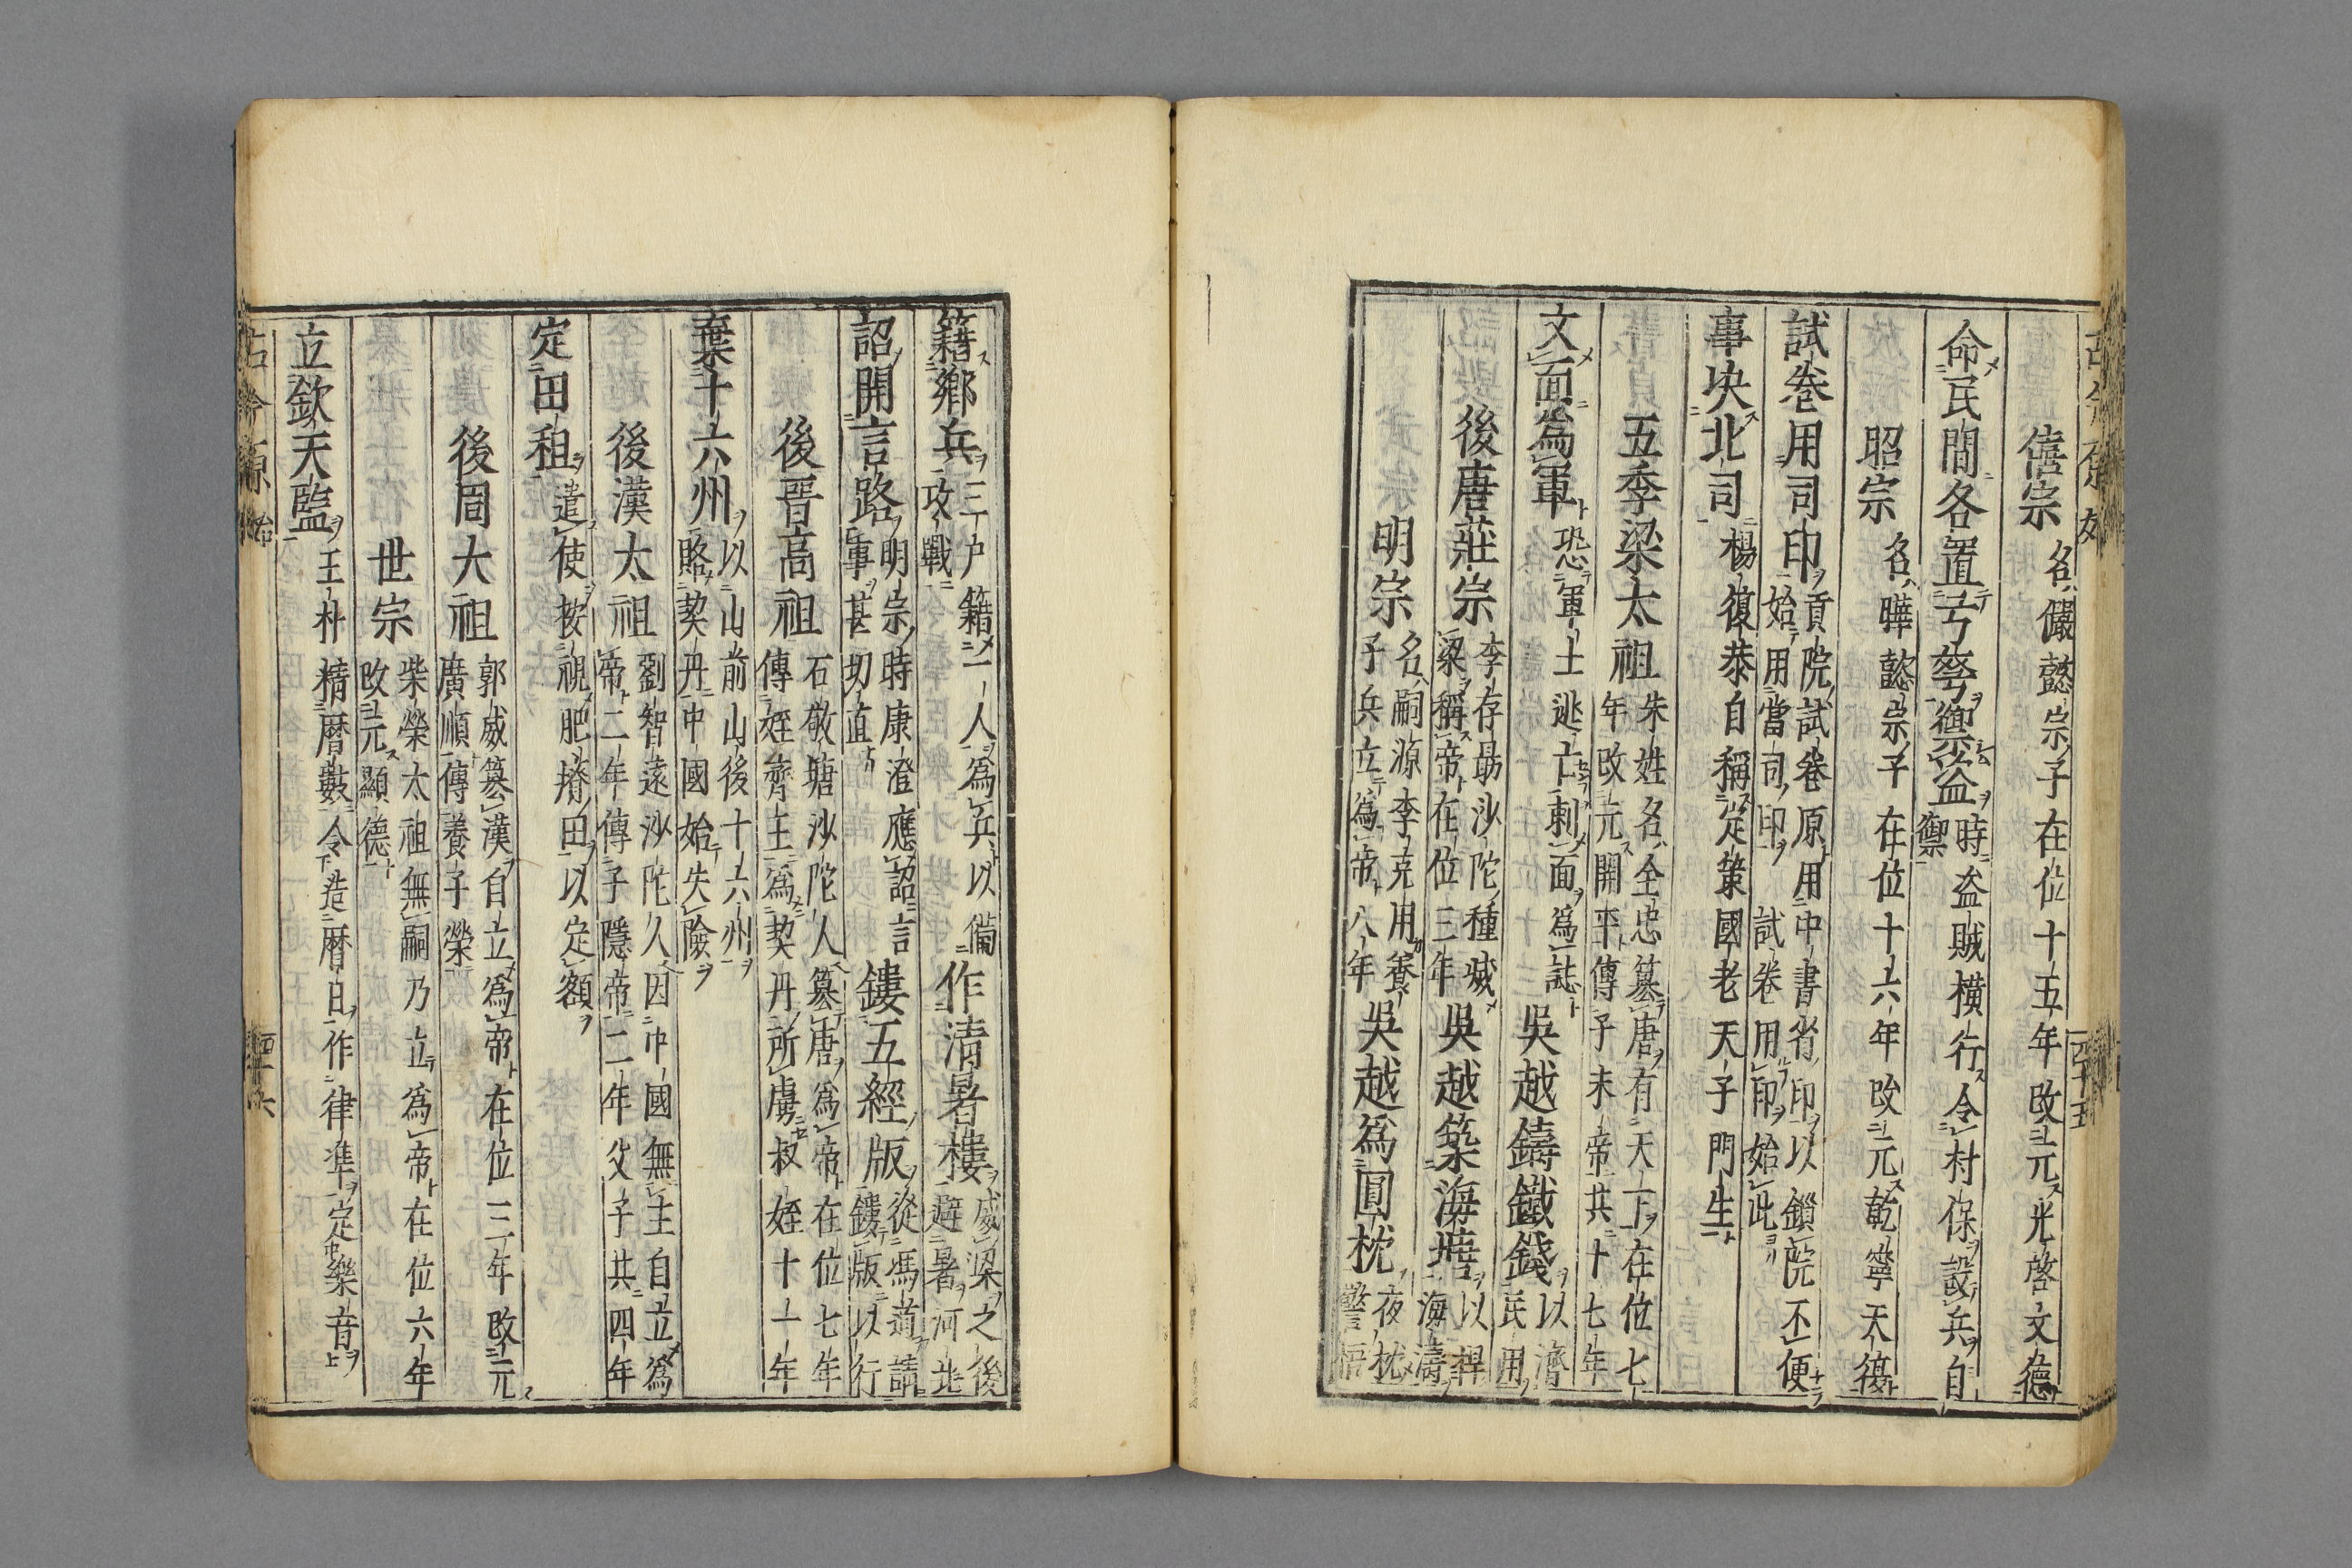 僖宗 名儼懿宗子在位十五年改元光啓文德
命民間各置弓弩禦盗 時盗賊横行令村保設兵自禦
昭宗 名曄懿宗子在位十六年改元乾寧天復
試卷用司印 貢院試卷原用中書省印以鎖院不便始用當司印試卷用印始此
事决北司 楊復恭自稱定策國老天子門生
五季梁太祖 朱姓名全忠簒唐有天下在位七年改元開平傳子末帝共十七年
文面爲軍 恐軍士逃亡刺面爲誌 吳越鑄鐵錢 以濟民用
後唐莊宗 李存勗沙陀種滅梁稱帝在位三年 吳越築海塘 以捍海濤
明宗 名嗣源李克用養子兵立爲帝八年 吳越爲圓枕 夜枕警悟
籍鄉兵 三户籍一人爲兵以備攻戰 作清暑樓 威梁之後避暑河北
詔開言路 明宗時康澄應詔言事甚切直 鏤五經版 從馮道請鏤版以行
後晋高祖 石敬塘沙陀人簒唐爲帝在位七年傳姪齊王爲契丹所虜叔姪十一年
棄十六州 以山前山後十六州賂契丹中國始失險
後漢太祖 劉智遠沙陀人因中國無主自立爲帝二年傳子隱帝二年父子共四年
定田租 遣使按視肥瘠田以定額
後周大祖 郭威簒漢自立爲帝在位三年改元廣順傳養子榮
世宗 柴榮太祖無嗣乃立爲帝在位六年改元顯德
立欽天監 王朴精曆數令造曆日作律準定樂音